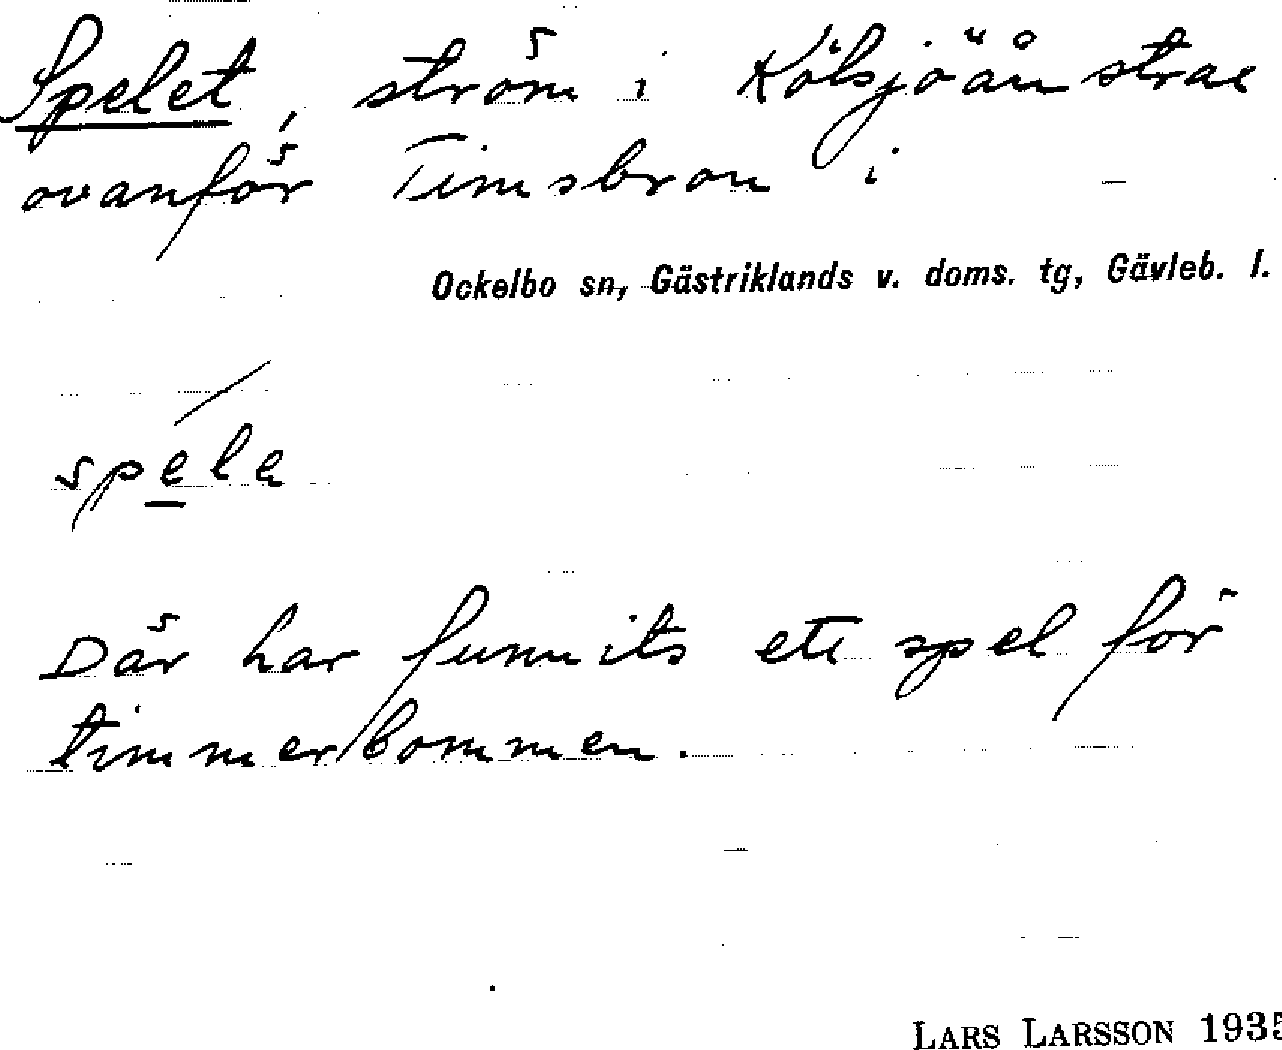 Spelet, ström i Kölsjöån strax
ovanför Timsbron i
Ockelbo sn, Gästriklands v. doms. tg, Gävleb. l.
spela
Där har funnits ett spel för
timmerbommen.
LARS LARSSON 1935